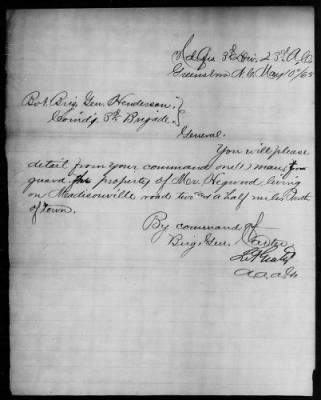 Hd Qrs 3d Div. 23d A.C.
Greensboro N.C. May 10th/65
Bvt. Brig. Gen. Henderson.
Comdg 3d Brigade.
General.
You will please
detail from your command one (1) man to
guard the property of Mrs. Hegwood, living
on Madisonville road two and a half miles North
of town.
By command of
Brig. Gen. Carter
A.A.A.G.